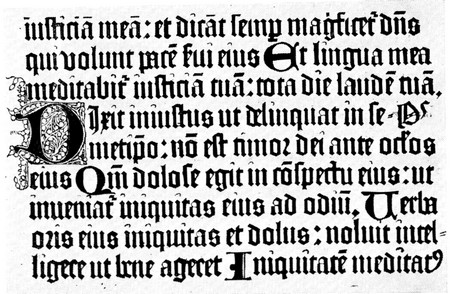 iusticiā meā: et dicāt semp magͥficet᷑ dn̄s
qui volunt pacē ẜui eius Et lingua mea
meditabit᷑ iusticiā tuā: tota die laudē tuā.
Dixit iniustus ut delinquat in se- P̄s
metip̄o: nō est timor dei ante oc̄los
eius Qm̄ dolose egit in cōspectu eius: ut
inueniat᷑ iniquitas eius ad odiū. Uerba
oris eius iniquitas et dolus: noluit intel-
ligere ut bene ageret Iniquitatē meditatꝰ